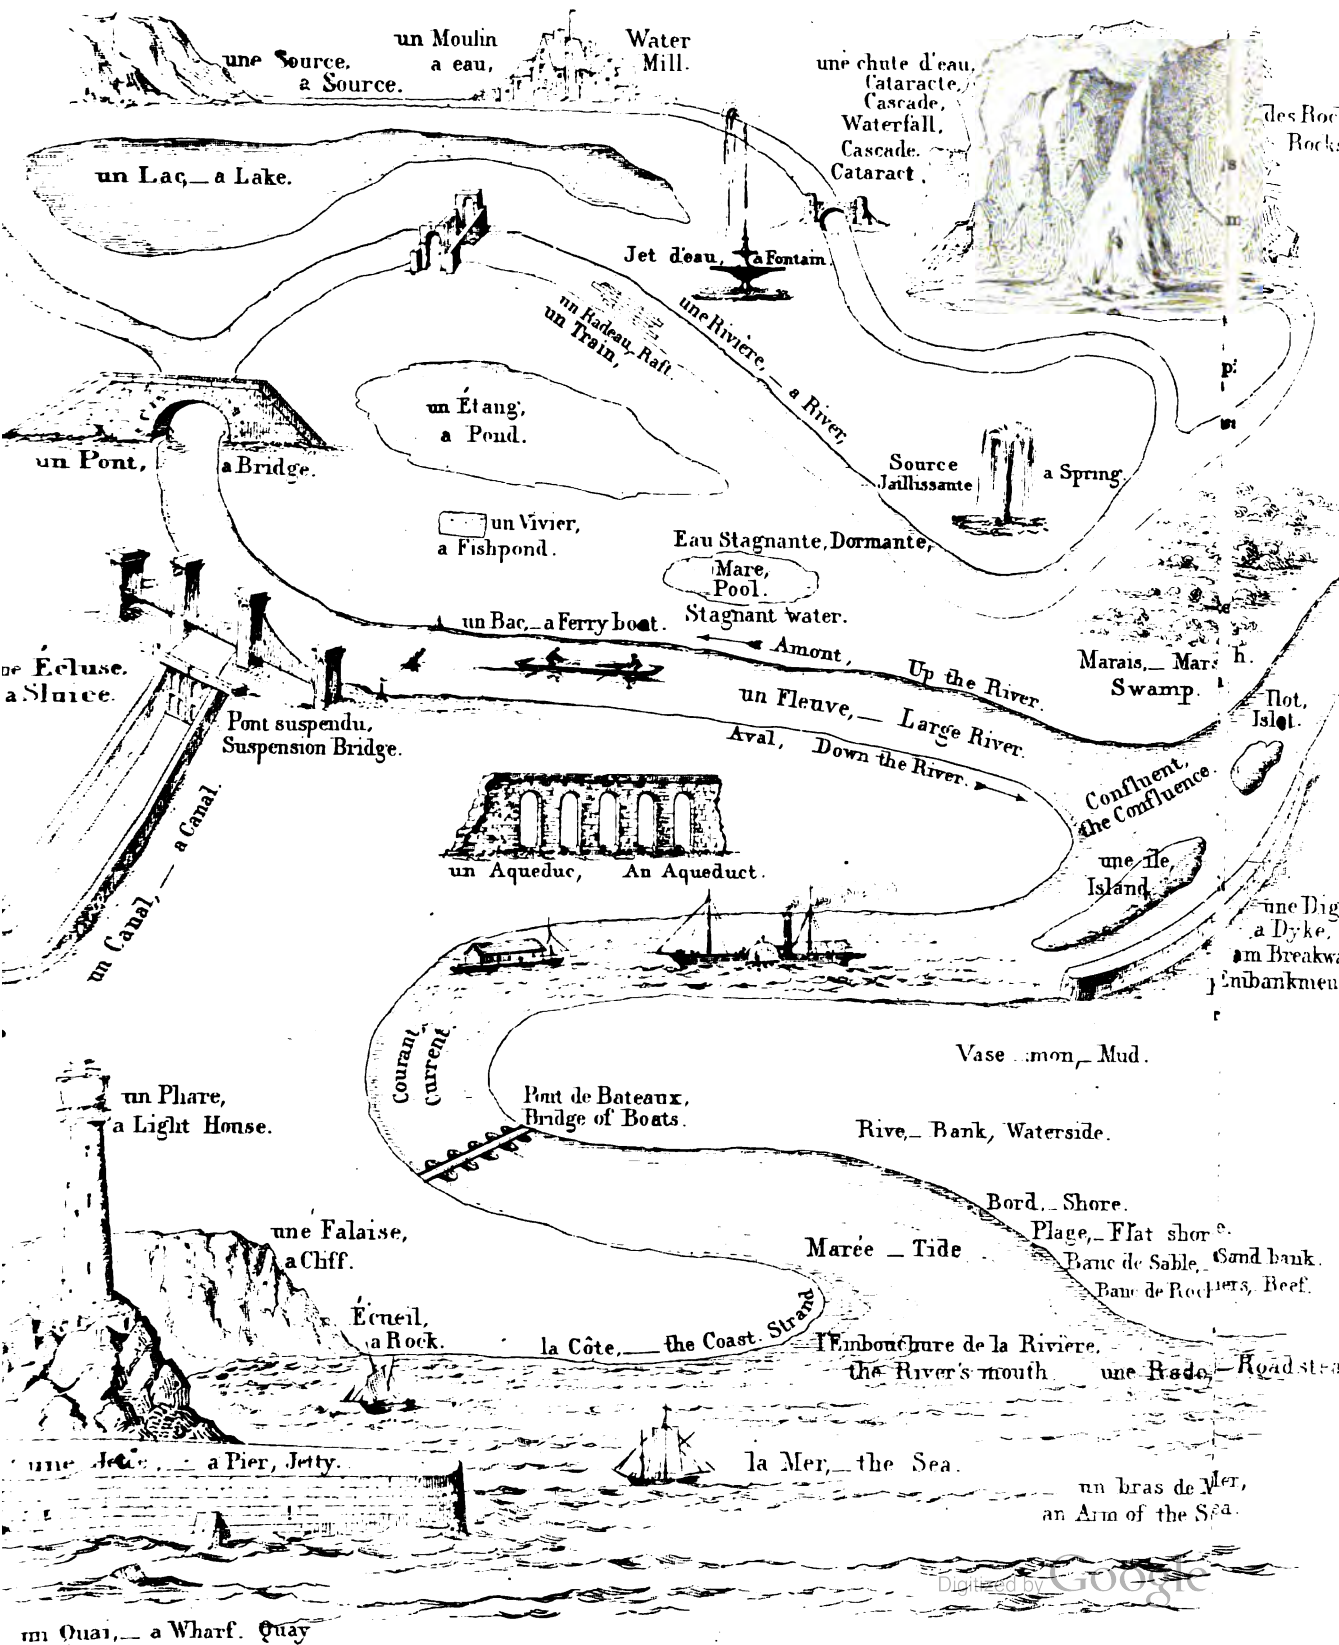 une Source,
a Source.
un Moulin
a eau,
Water
Mill.
une chute d'eau,
Cataracte,
Cascade,
Waterfall,
Cascade.
Cataract.
des Roc
Rocks
un Lac,_ a Lake.
Jet d'eau, a Fontain.
un Radeau, Raft.
un Train,
une Rivière, _ a River,
un Étang,
a Pond.
un Pont, a Bridge.
Source
Jaillissante
a Spring.
un Vivier,
a Fishpond.
Eau Stagnante, Dormante,
Mare,
Pool.
Stagnant water.
un Bac,_ a Ferry boat.
Amont, Up the River.
Marais,_ Marsh.
Swamp.
Écluse.
a Sluice.
Pont suspendu,
Suspension Bridge.
un Fleuve,_ Large River.
Aval, Down the River.
Ilot,
Islet.
Confluent,
the Confluence.
un Canal, _ a Canal.
un Aqueduc, An Aqueduct.
une île,
Island
une Dig
a Dyke,
Breakwa
Embankmen
Courant,
Current.
Vase
mon,_ Mud.
un Phare,
a Light House.
Pont de Bateaux,
Bridge of Boats.
Rive,_ Bank, Waterside.
Bord,_ Shore.
Plage,_ Flat shore.
Banc de Sable,_ Sand bank.
Banc de Rochers, Reef.
une Falaise,
a Cliff.
Marée _ Tide
Écueil,
a Rock.
la Côte,_ the Coast. Strand
l'Embouchure de la Rivière,
the River's mouth
une Rade,_ Roadstea
une Jetée, _ a Pier, Jetty.
la Mer,_ the Sea.
un bras de Mer,
an Arm of the Sea.
Digitized by Google
un Quai,_ a Wharf. Quay